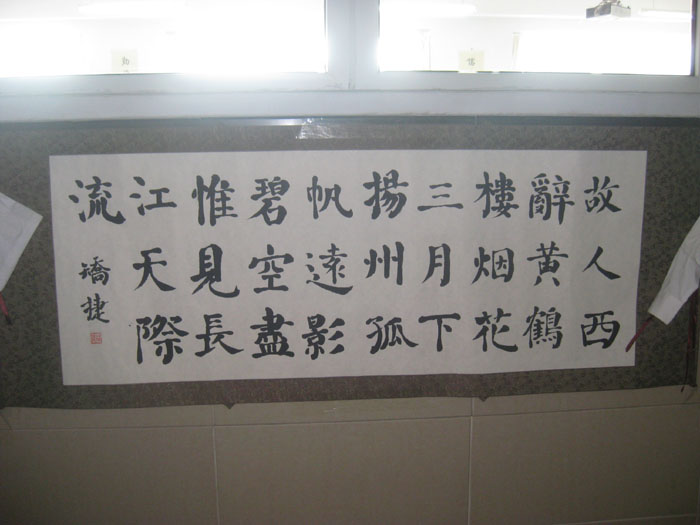 故人西
辭黄鶴
樓烟花
三月下
揚州孤
帆遠影
碧空盡
惟見長
江天際
流
捷